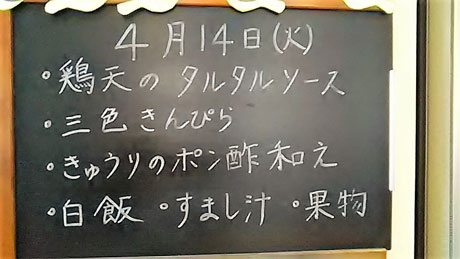 4月14日(火)
・鶏天のタルタルソース
・三色きんぴら
・きゅうりのポン酢和え
・白飯 ・すまし汁 ・果物